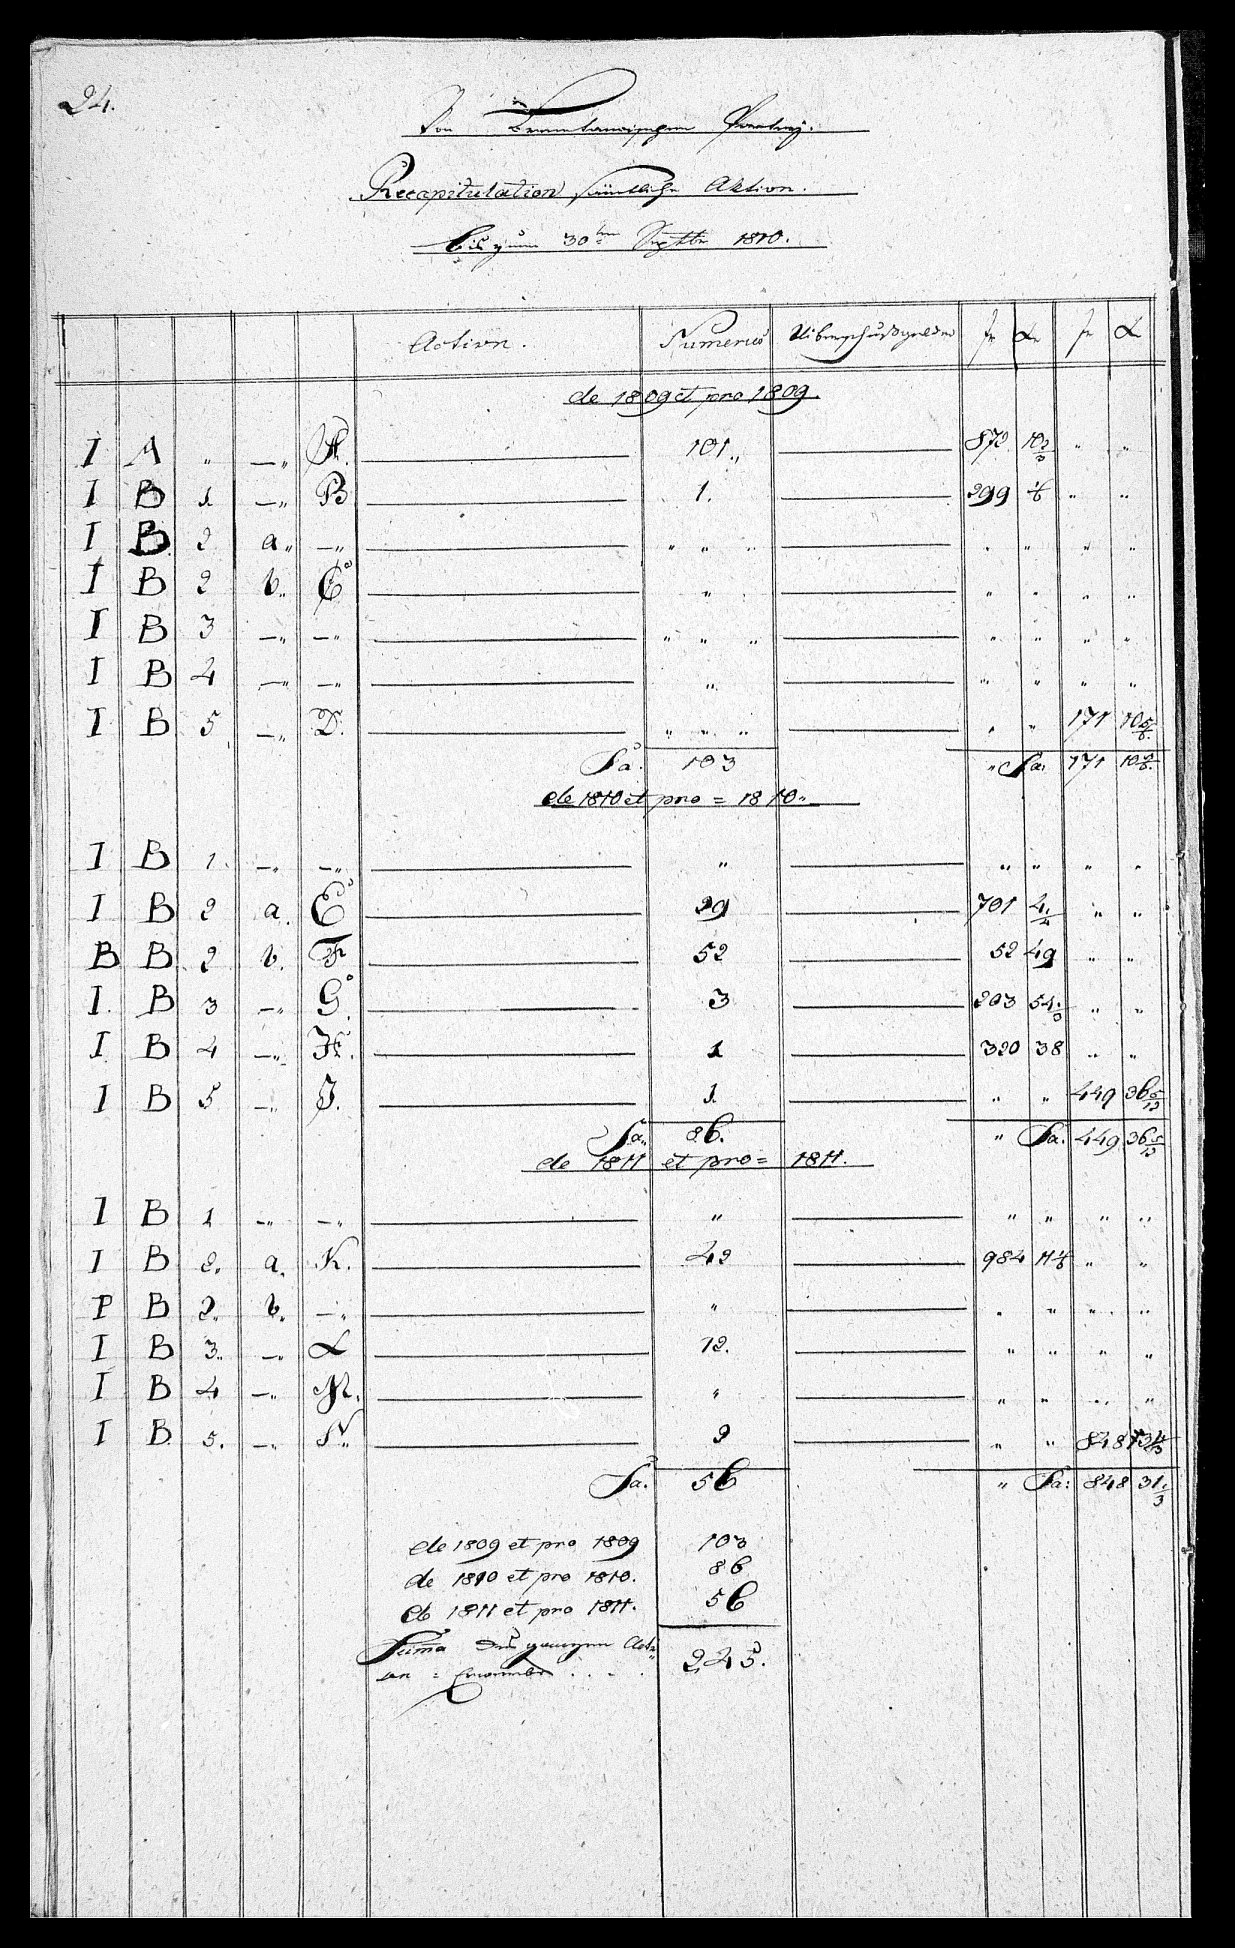 24.
Von
Recapitulation sämtlicher Aktion.
bis zum 30ten Septbr 1810.
Action. Numerus Uiberschußgelder fr Xr fr X
de 1809 et pro 1809.
I A „ —„ A. 101„ 872 10 2/3 „ „
I B 1 —„ B 1. 299 1/6 „ „
I B 2 a„ —„ „ „ „ „ „ „ „
I B 2 b„ C „ „ „ „ „
I B 3 —„ —„ „ „ „ „ „ „ „
I B 4 —„ —„ „ „ „ „ „
I B 5 —„ D. „ „ „ „ „ 171 10 5/6.
Sa. 103 „ Sa. 171 10 5/6.
de 1810 et pro = 1810„
I B 1. —„ —„ „ „ „ „ „
I B 2 a. E 29 701 4 1/4 „ „
B B 2 b. F 52 52 49 „ „
I. B 3 —„ G. 3 203 54 1/3 „ „
I B 4 —„ H. 1 320 38 „ „
I B 5 —„ J. 1. „ „ 449 36 5/12
Sa. 86. „ Sa. 449 36 5/12
de 1811 et pro = 1811.
I B 1 —„ —„ „ „ „ „ „
I B 2. a. K. 42 984 11 1/6 „ „
P B 2. b. —„ „ „ „ „ „
I B 3. —„ L 12. „ „ „ „
I B 4 —„ M. „ „ „ „ „
I B. 5. —„ N. 2 „ „ 848
Sa. 56 „ Sa: 848 31 1/3
de 1809 et pro 1809 103
de 1810 et pro 1810. 86
de 1811 et pro 1811. 56
Suma des ganzen Acti„
on = Enommbr . . . . 245.